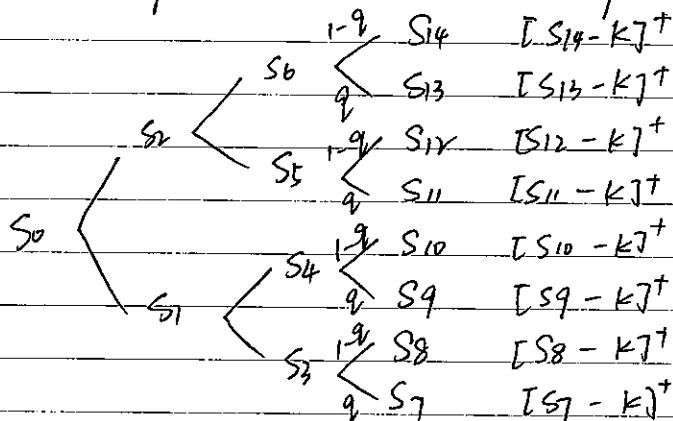 1-q S14 [S14-K]+
S6
q S13 [S13-K]+
S2
1-q S12 [S12-K]+
S5
q S11 [S11-K]+
S0
1-q S10 [S10-K]+
S4
q S9 [S9-K]+
S1
1-q S8 [S8-K]+
S3
q S7 [S7-K]+